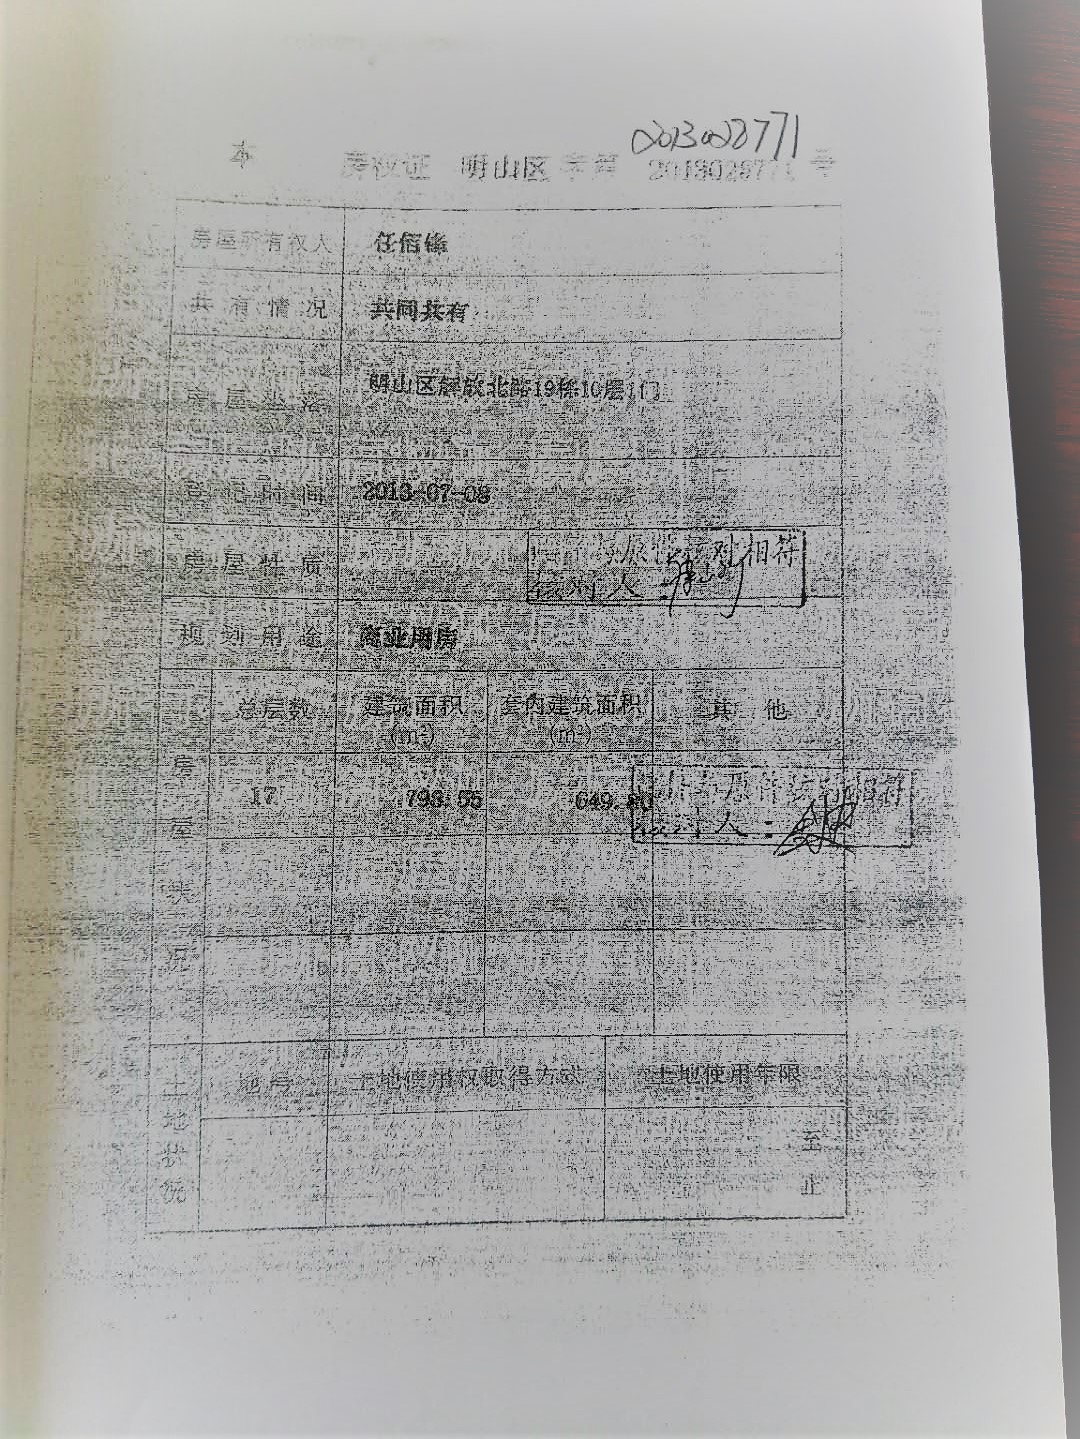 2013028771
本 房权证 明山区 字第 2013028771 号
房屋所有权人 任佰锋
共有情况 共同共有
房屋坐落 明山区解放北路19栋10层1门
登记时间 2013-07-08
房屋性质
原件核对相符
核对人：
规划用途 商业用房
房屋状况
总层数 建筑面积 套内建筑面积 其他
(m²) (m²)
17 793.55 649.
件与原件核对相符
核对人：
土地状况
地号 土地使用权取得方式 土地使用年限
至
止